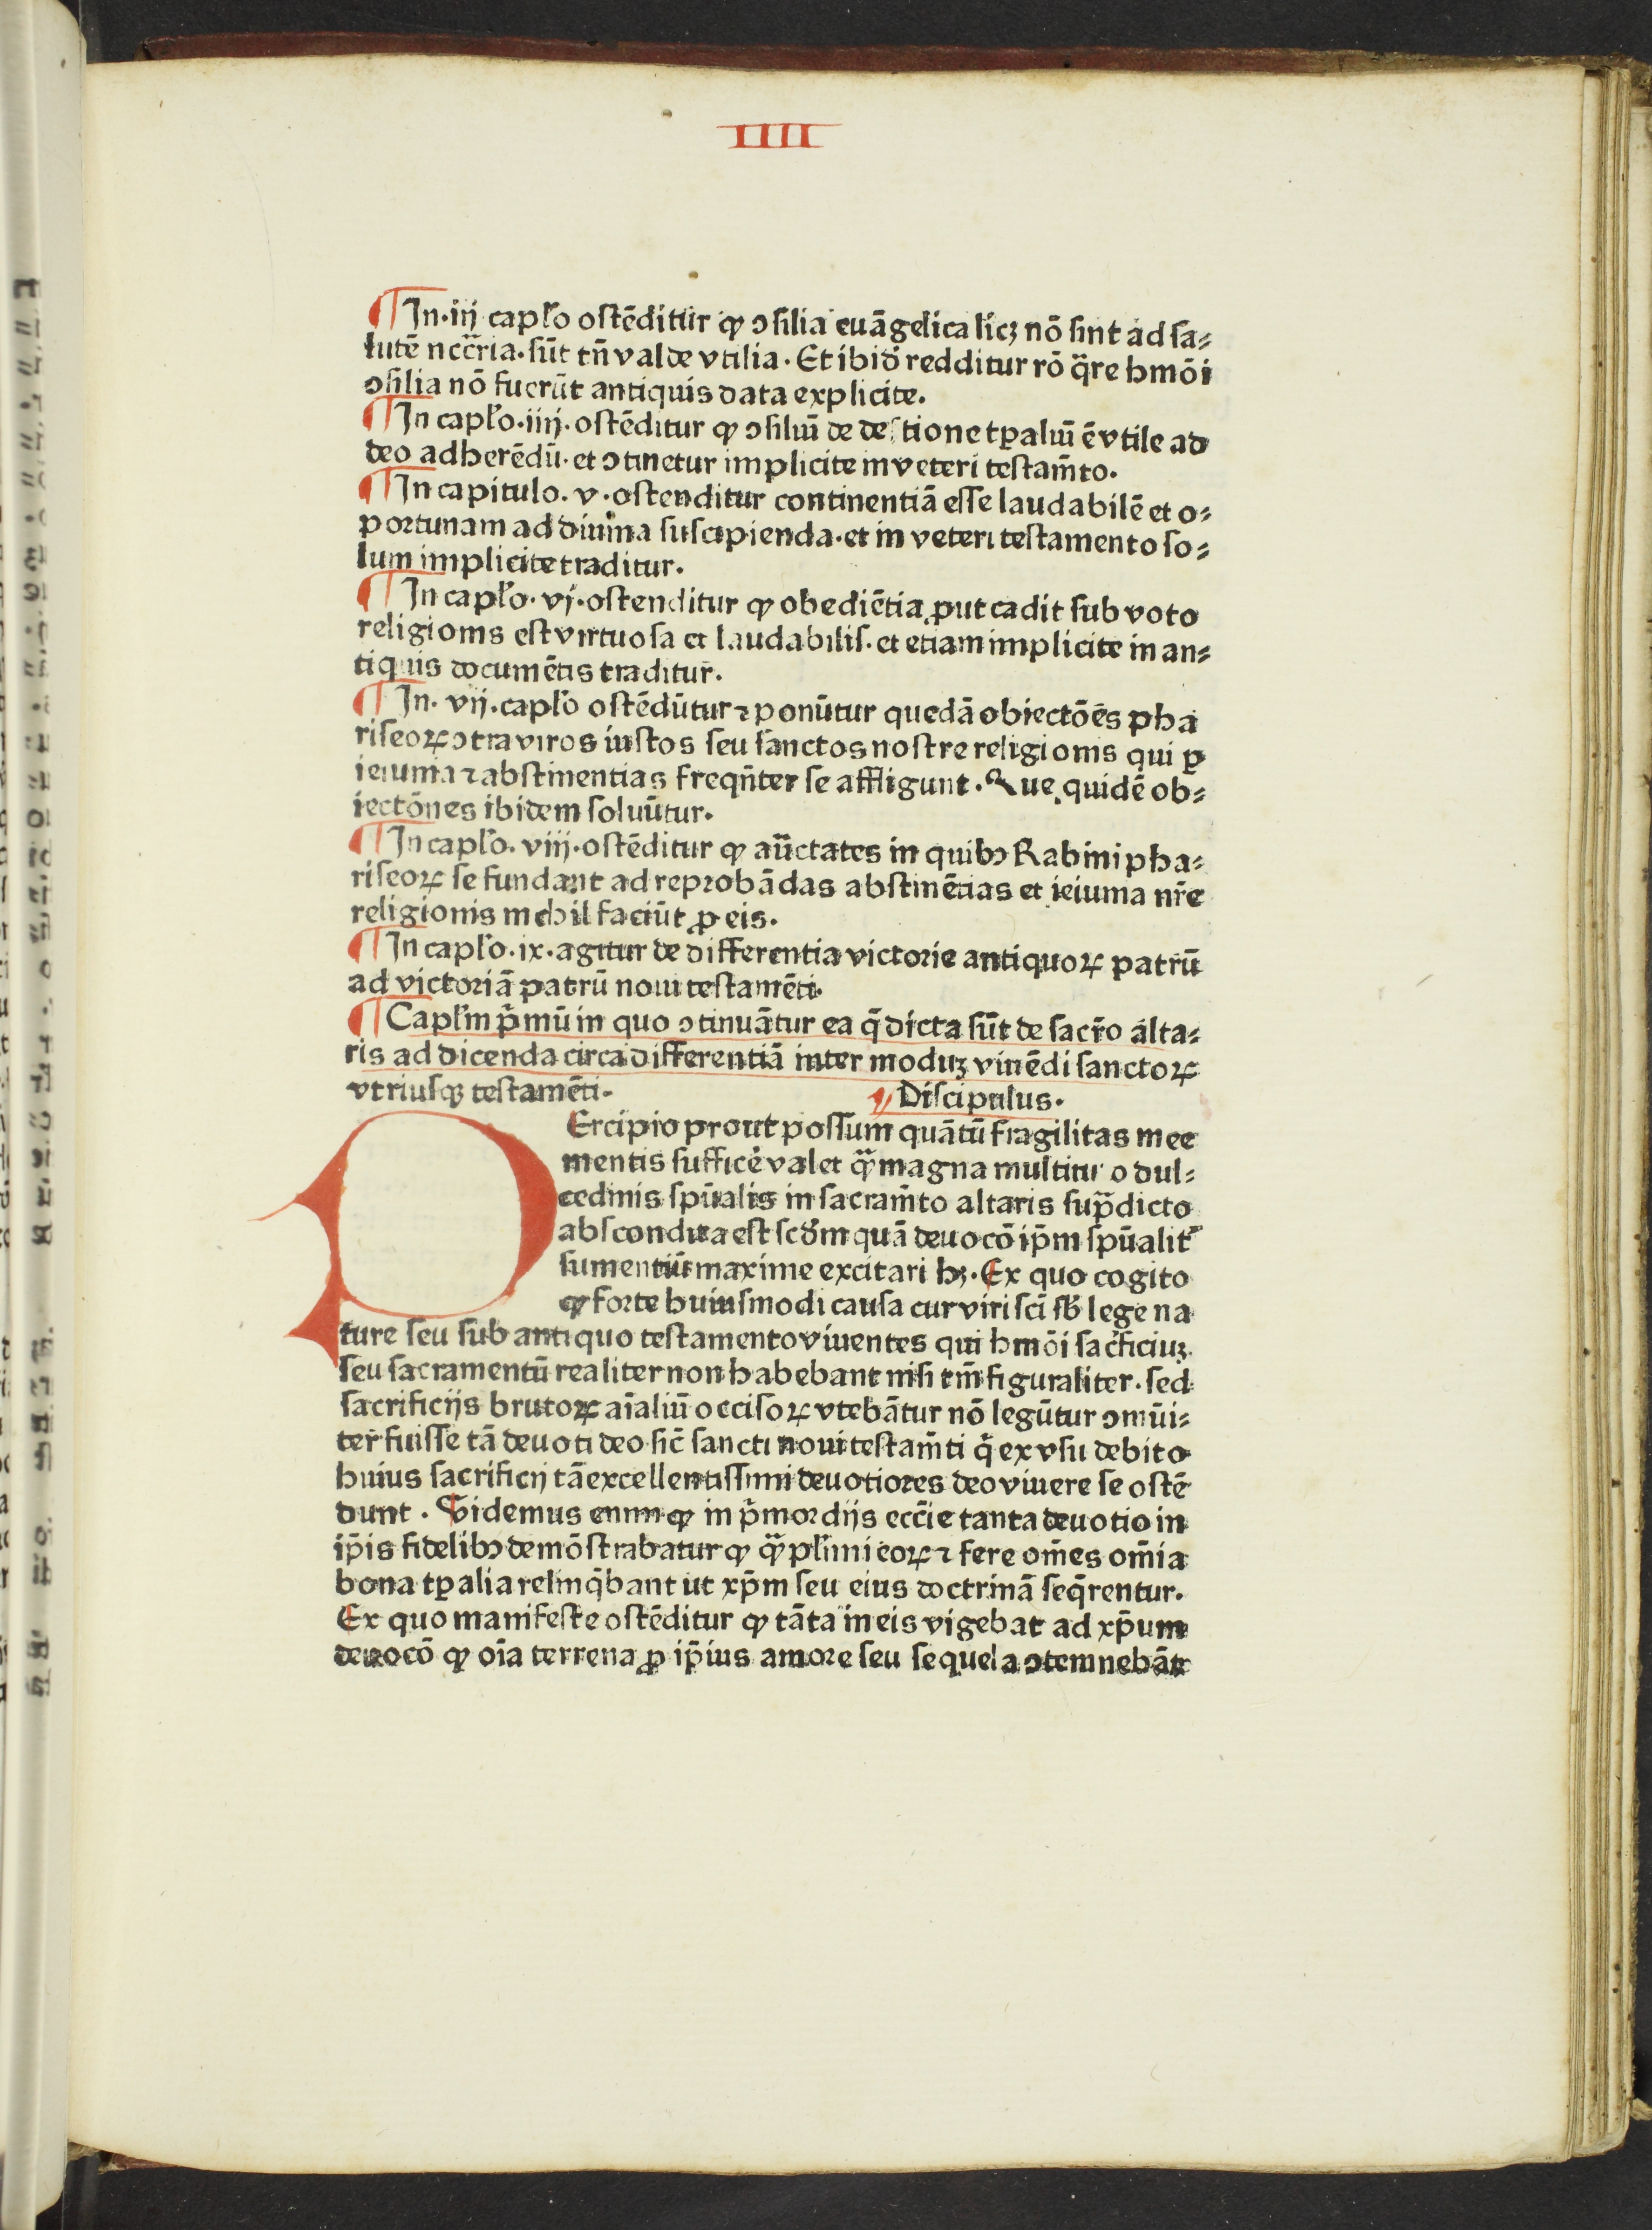 IIII
¶In·iij capl'o ostēditur ꝙ ↄsilia euāgelica licꝫ nō sint ad sa⸗
lutē nccr̄ia·sūt tn̄ valde vtilia·Et ibidē redditur rō q̄re hmōi
ↄsilia nō fuerūt antiquis data explicite.
¶In capl'o·iiij·ostēditur ꝙ ↄsiliū de destione tꝑaliū ē vtile ad
deo adherēdū·et ↄtinetur implicite in veteri testam̄to.
¶In capitulo·v·ostenditur continentiā esse laudabilē et o⸗
portunam ad diuina suscipienda·et in veteri testamento so⸗
lum implicite traditur.
¶In capl'o·vj·ostenditur ꝙ obediētia ꝓut cadit sub voto
religionis est virtuosa et laudabilis·et etiam implicite in an⸗
tiquis documētis traditur.
¶In·vij·capl'o ostēdūtur ⁊ ponūtur quedā obiectōēs pha
riseoꝝ ↄtra viros iustos seu sanctos nostre religionis qui ꝑ
ieiunia ⁊ abstinentias freqn̄ter se affligunt·Que quidē ob⸗
iectōnes ibidem soluūtur.
¶In capl'o·viij·ostēditur ꝙ auc̄tates in quibꝰ Rabini pha⸗
riseoꝝ se fundant ad reprobādas abstinētias et ieiunia nr̄e
religionis nichil faciūt ꝓ eis.
¶In capl'o·ix·agitur de differentia victorie antiquoꝝ patrū
ad victoriā patrū noui testamēti·
¶Capl'm p̄mū in quo ↄtinuātur ea q̄ dicta sūt de sacr̄o alta⸗
ris ad dicenda circa differentiā inter moduꝫ viuēdi sanctoꝝ
vtriusqꝫ testamēti·
¶ Discipulus·
PErcipio prout possum quātū fragilitas mee
mentis sufficē valet qͣ magna multitudo dul⸗
cedinis spūalis in sacram̄to altaris supͣdicto
abscondita est scd̄m quā deuocō ip̄m spūalit̄
sumentiū maxime excitari hꝫ·Ex quo cogito
ꝙ forte huiusmodi causa cur viri sci̅ sb̄ lege na
ture seu sub antiquo testamento viuentes qui hmōi sac̄ficiuꝫ
seu sacramentū realiter non habebant nisi tm̄ figuraliter·sed
sacrificijs brutoꝝ aīaliū occisoꝝ vtebātur nō legūtur ↄmūi⸗
ter fuisse tā deuoti deo sic̄ sancti noui testam̄ti q̄ ex vsu debito
huius sacrificij tā excellentissimi deuotiores deo viuere se ostē
dunt·Videmus enim ꝙ in p̄mordijs ecc̄ie tanta deuotio in
ip̄is fidelibꝰ demōstrabatur ꝙ qͣ pl'imi eoꝝ ⁊ fere om̄es om̄ia
bona tꝑalia relinq̄bant ut xp̄m seu eius doctrinā seq̄rentur.
Ex quo manifeste ostēditur ꝙ tāta in eis vigebat ad xp̄um
deuocō ꝙ oīa terrena ꝓ ip̄ius amore seu sequela ↄtemnebāt